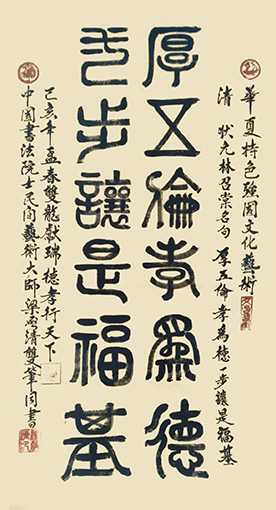 華夏特色强国文化藝術
清 状元林召棠名句 厚五倫孝為德 一步讓是福基
厚五倫孝為德
弌步讓是福基
己亥年孟春雙龍獻瑞德孝行天下
中國書法院士民间藝術大師梁清雙筆同書